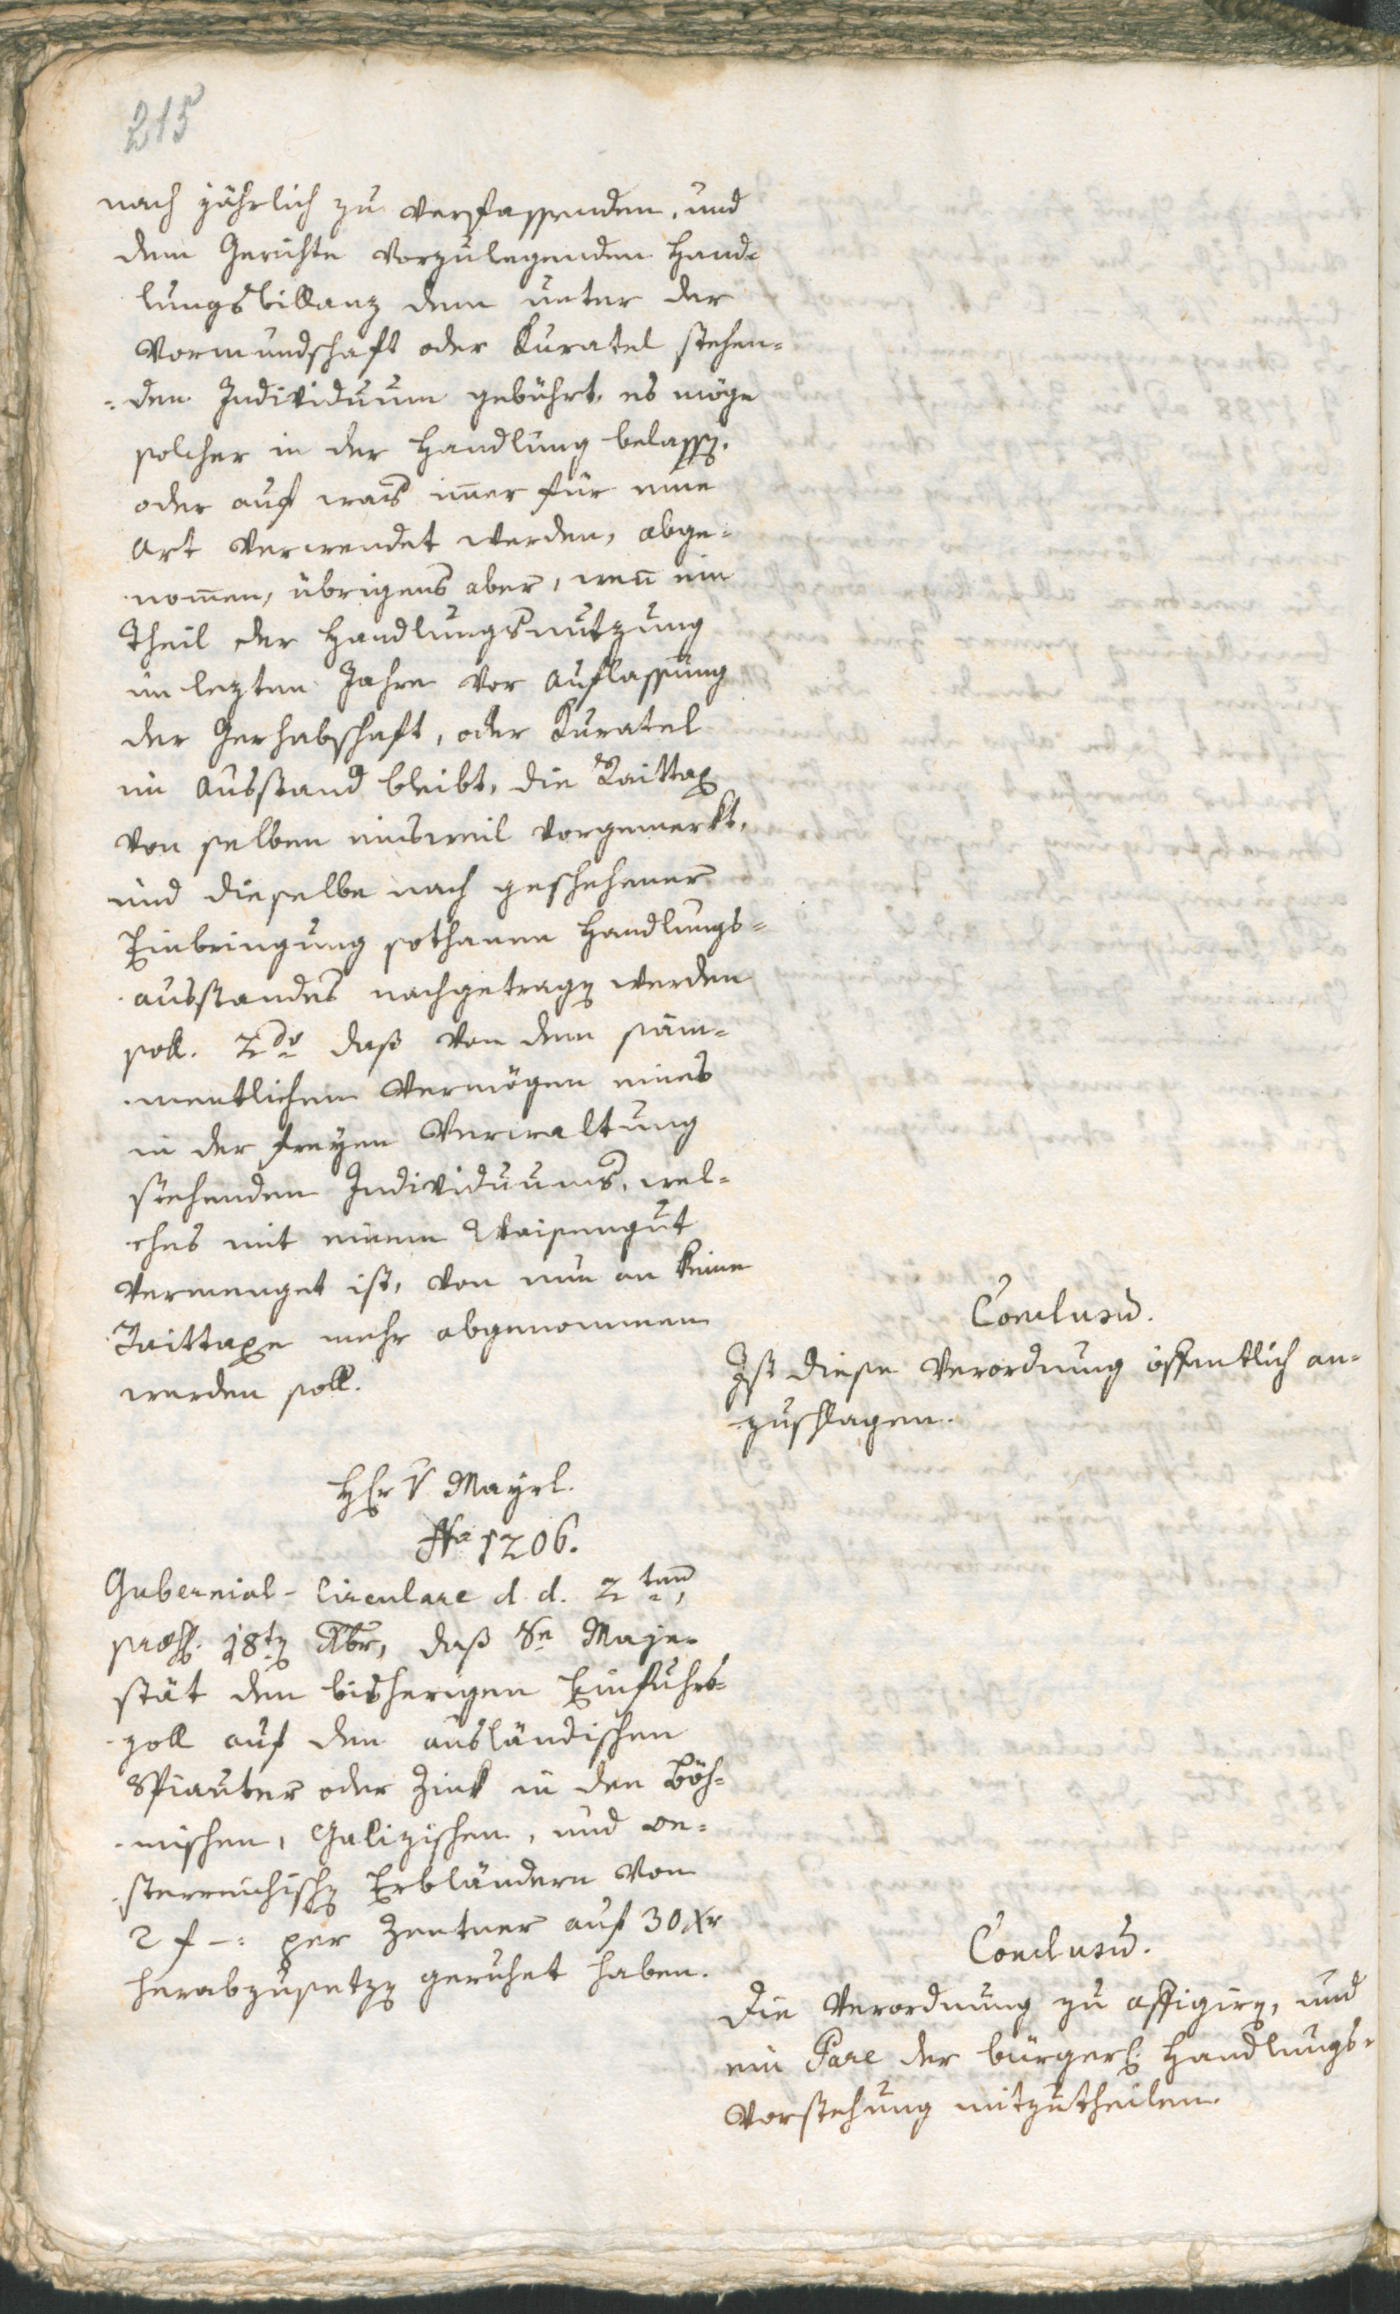 215
nach jährlich zu verfassenden, und
dem Gerichte vorzulegenden Hand=
lungsbillanz dem unter der
Vormundschaft oder Kuratel stehen=
=den Individuum gebührt, es möge
solcher in der Handlung belassen,
oder auf was im̄er für eine
Art verwendet werden, abge=
nom̄en, übrigens aber, wen̄ ein
Theil der Handlungsnutzung
im lezten Jahre vor Auflassung
der Gerhabschaft, oder Kuratel
im Ausstand bleibt, die Raittax
von selben einsweil vorgemerkt,
und dieselbe nach geschehener
Einbringung sothanen Handlungs=
ausstandes nachgetragen werden
soll. 2do daß von dem säm=
mentlichem Vermögen eines
in der freyen Verwaltung
stehenden Individuums, wel=
ches mit einem Waisengut
vermenget ist, von nun an keine
Raittaxe mehr abgenommen
werden soll.
Conclusū.
Ist diese Verordnung öffentlich an=
zuschlagen.
Hr v Mayrl.
No 1206.
Gubernial-Circulare d. d. 2ten,
præs. 18ten Xbr, daß Se Maje=
stät den bisherigen Einfuhrs=
zoll auf den ausländischen
Spiauter oder Zink in den Böh=
mischen, Galizischen, und oe=
sterreichischen Erbländern von
2 f –: per Zentner auf 30 Xr
herabzusetzen geruhet haben.
Conclusū.
Die Verordnung zu affigiren, und
ein Pare der bürgerl. Handlungs=
Vorstehung mitzutheilen.